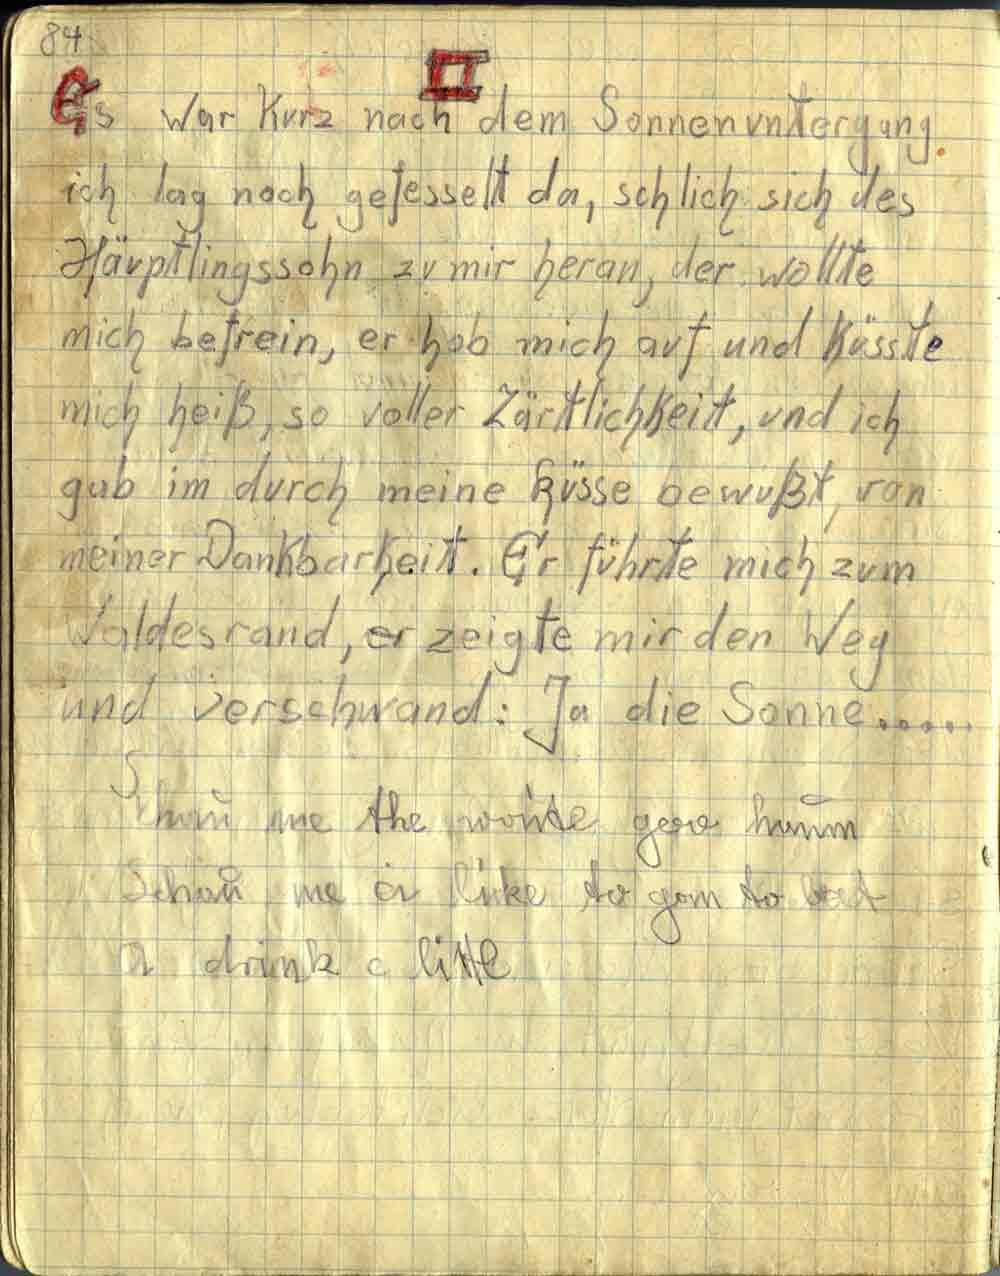 84
II
Es war kurz nach dem Sonnenuntergang.
ich lag noch gefesselt da, schlich sich des
Häuptlingssohn zu mir heran, der wollte
mich befrein, er hob mich auf und küsste
mich heiß, so voller Zärtlichkeit, und ich
gab im durch meine küsse bewußt, von
meiner Dankbarkeit. Er führte mich zum
Waldesrand, er zeigte mir den Weg
und verschwand: Ja die Sonne.....
me the
Schaū me like to gom to
a drink a little